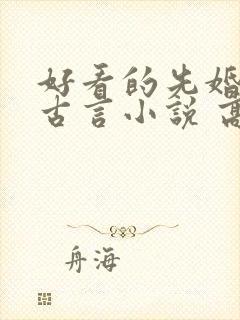 好看的先婚
古言小说 高
舟海